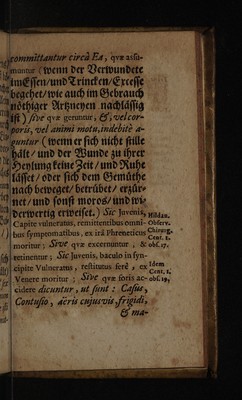 committuntur circà Ea, quæ assu-
muntur (wenn der Verwundete
im Essen/ und Trincken/ Excesse
begehet/ wie auch im Gebrauch
nöthiger Artzneyen nachlässig
ist) sive quæ geruntur, &, vel cor-
poris, vel animi motu, indebitè a-
guntur (wenn er sich nicht stille
hält/ und der Wunde zu ihrer
Heylung keine Zeit/ und Ruhe
lässet/ oder sich dem Gemüthe
nach beweget/ betrübet/ erzür-
net/ und sonst moros/ und wi-
derwertig erweiset.) Sic Juvenis,
Capite vulneratus, remittentibus omni-
bus symptomatibus, ex irâ Phreneticus
moritur; Sive quæ excernuntur, &
retinentur; Sic Juvenis, baculo in syn-
cipite Vulneratus, restitutus ferè, ex
Venere moritur; Sive quæ foris ac-
cidere dicuntur, ut sunt: Casus,
Contusio, aëris cujusvis, frigidi,
& ma-
Hildan.
Observ.
Chirurg.
Cent. 1.
obs. 17.
Idem
Cent. 1.
obs. 19.